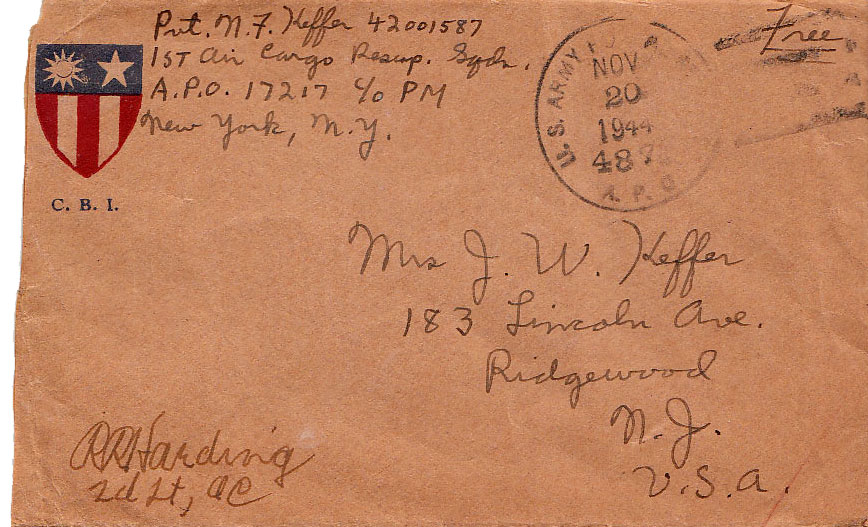 Pvt. N. F. Keffer 42001587
1ST Air Cargo Resup. Sqdn.
A.P.O. 17217 c/o PM
New York, N.Y.
Free
U.S. ARMY
NOV
20
1944
487
A.P.O
C. B. I.
Mrs J. W. Keffer
183 Lincoln Ave.
Ridgewood
N.J.
U.S.A.
RRHarding
2d Lt, AC